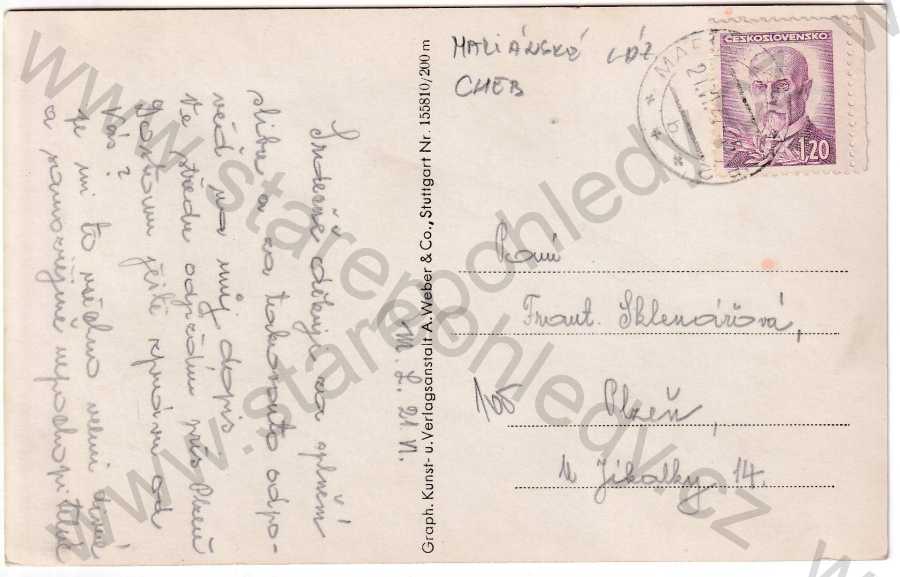 MARIÁNSKÉ LÁZ
CHEB
ČESKOSLOVENSKO
1,20
M. L. 21. VI.
Srdečně děkuji za splnění
slibu a za takovouto odpo-
věď na můj dopis.
Ve středu odjíždím přes Plzeň
ještě zprávu od
Vás?
že mi to všechno velmi divné
a samozřejmě nepochopitelné
Graph. Kunst- u. Verlagsanstalt A. Weber & Co., Stuttgart Nr. 155810/200 m
Paní
Frant. Sklenářová,
105 Plzeň,
U Jíkalky 14.
www.starepohledy.cz